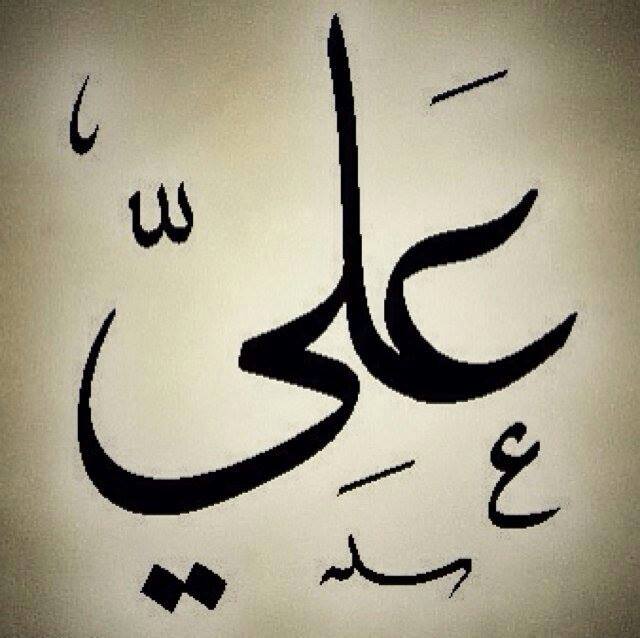 عَلِيّ